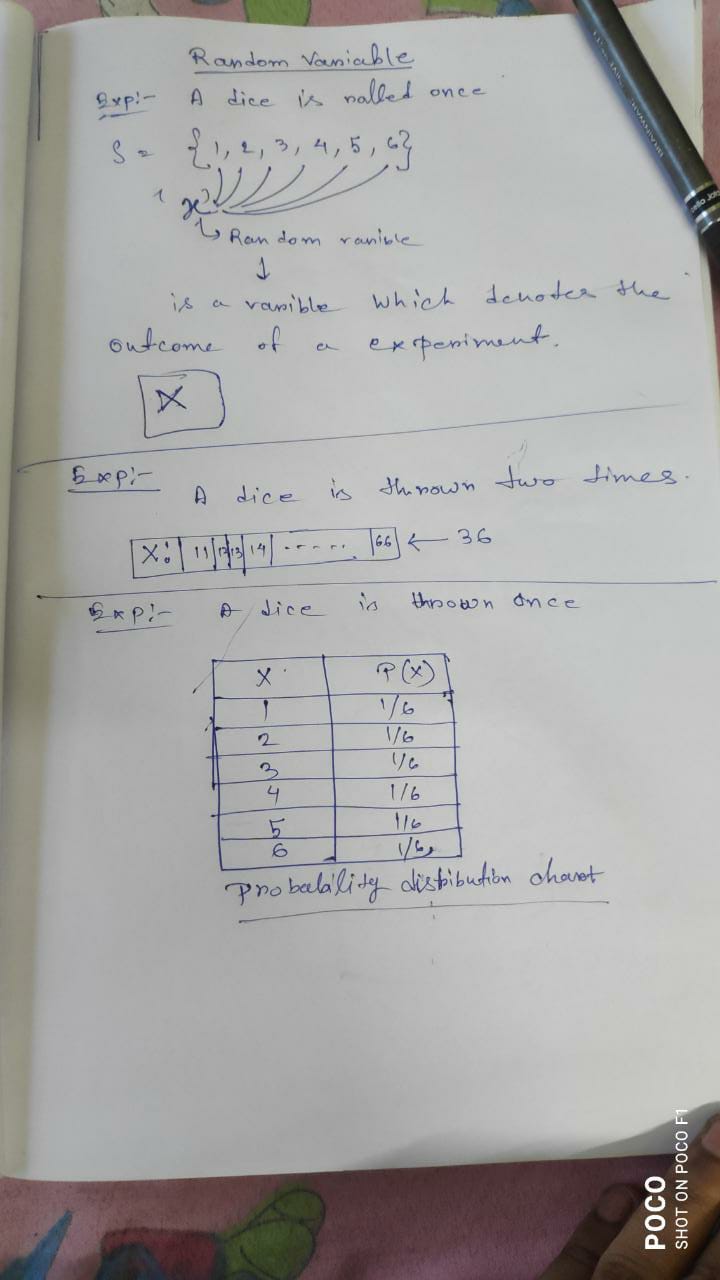 Random Variable
Exp:- A dice is rolled once
S = {1, 2, 3, 4, 5, 6}
x
Random varible
is a varible which denotes the
outcome of a experiment.
X
Exp:- A dice is thrown two times.
X: 11 12 13 14 ...... 66 ← 36
Exp:- A dice is thrown once
X P(X)
1 1/6
2 1/6
3 1/6
4 1/6
5 1/6
6 1/6
Probability distribution chart
POCO
SHOT ON POCO F1